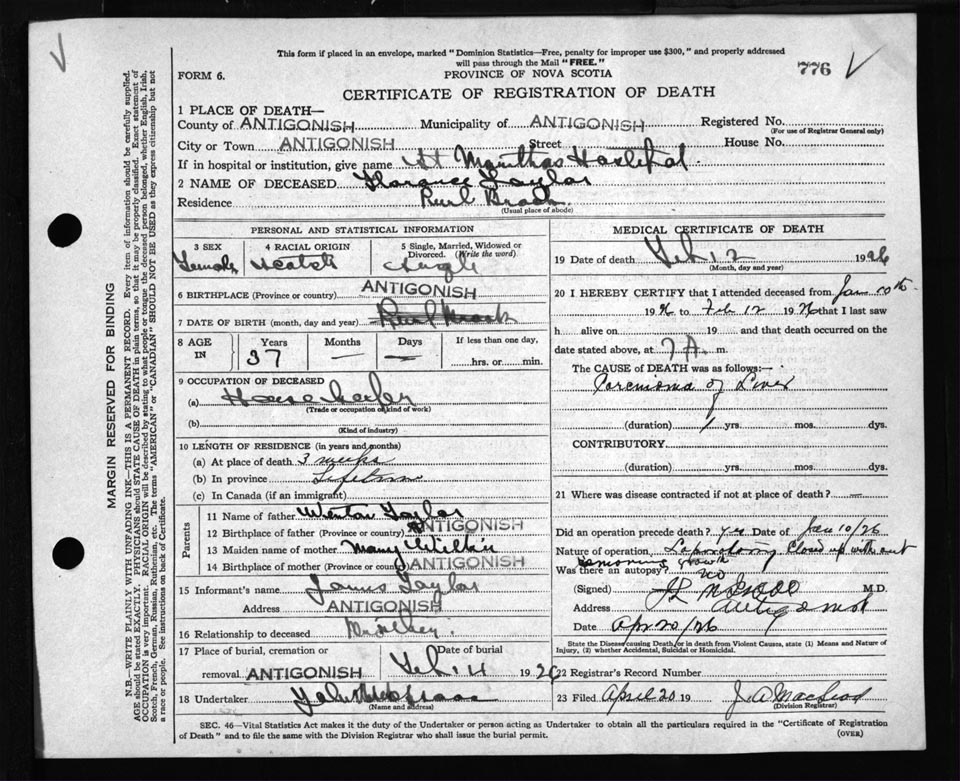 This form if placed in an envelope, marked "Dominion Statistics—Free, penalty for improper use $300," and properly addressed
will pass through the Mail "FREE."
FORM 6.
PROVINCE OF NOVA SCOTIA
776
CERTIFICATE OF REGISTRATION OF DEATH
1 PLACE OF DEATH—
County of ANTIGONISH Municipality of ANTIGONISH Registered No.
(For use of Registrar General only)
City or Town ANTIGONISH Street House No.
If in hospital or institution, give name St Marthas Hospital
2 NAME OF DECEASED Florence Taylor
Residence
(Usual place of abode)
PERSONAL AND STATISTICAL INFORMATION
3 SEX 4 RACIAL ORIGIN 5 Single, Married, Widowed or
Divorced. (Write the word)
Female Scotch Single
6 BIRTHPLACE (Province or country) ANTIGONISH
7 DATE OF BIRTH (month, day and year)
8 AGE Years Months Days If less than one day,
IN 37 — — hrs. or min.
9 OCCUPATION OF DECEASED
(a) House keeper
(Trade or occupation or kind of work)
(b)
(Kind of industry)
10 LENGTH OF RESIDENCE (in years and months)
(a) At place of death 3 weeks
(b) In province Lifetime
(c) In Canada (if an immigrant)
Parents
11 Name of father Taylor
12 Birthplace of father (Province or country) ANTIGONISH
13 Maiden name of mother Mary Wilkie
14 Birthplace of mother (Province or country) ANTIGONISH
15 Informant's name James Taylor
Address ANTIGONISH
16 Relationship to deceased Brother
17 Place of burial, cremation or Date of burial
removal ANTIGONISH Feb 14 1926
18 Undertaker
(Name and address)
MEDICAL CERTIFICATE OF DEATH
19 Date of death Feb 12 1926
(Month, day and year)
20 I HEREBY CERTIFY that I attended deceased from Jan 10th
1926 to Feb 12 1926 that I last saw
h alive on 19 and that death occurred on
date stated above, at 7 A. m.
The CAUSE of DEATH was as follows:—
Carcinoma of Liver
(duration) 1 yrs. mos. dys.
CONTRIBUTORY
(duration) yrs. mos. dys.
21 Where was disease contracted if not at place of death? —
Did an operation precede death? yes Date of Jan 10/26
Nature of operation, Laparotomy Closed up without
removing growth
Was there an autopsy? no
(Signed) M.D.
Address Antigonish
Date Apr 20/26
State the Disease causing Death, or in death from Violent Causes, state (1) Means and Nature of
Injury, (2) whether Accidental, Suicidal or Homicidal.
22 Registrar's Record Number
23 Filed April 20 19 J. A. MacLeod
(Division Registrar)
SEC. 46—Vital Statistics Act makes it the duty of the Undertaker or person acting as Undertaker to obtain all the particulars required in the "Certificate of Registration
of Death" and to file the same with the Division Registrar who shall issue the burial permit.
(OVER)
MARGIN RESERVED FOR BINDING
N.B.—WRITE PLAINLY WITH UNFADING INK—THIS IS A PERMANENT RECORD. Every item of information should be carefully supplied.
AGE should be stated EXACTLY. PHYSICIANS should STATE CAUSE OF DEATH in plain terms, so that it may be properly classified. Exact statement of
OCCUPATION is very important. RACIAL ORIGIN will be described by stating to what people or tongue the deceased person belonged, whether English, Irish,
Scotch, French, German, Russian, Ruthenian, etc. The terms "AMERICAN" or "CANADIAN" SHOULD NOT BE USED as they express citizenship but not
a race or people. See instructions on back of Certificate.